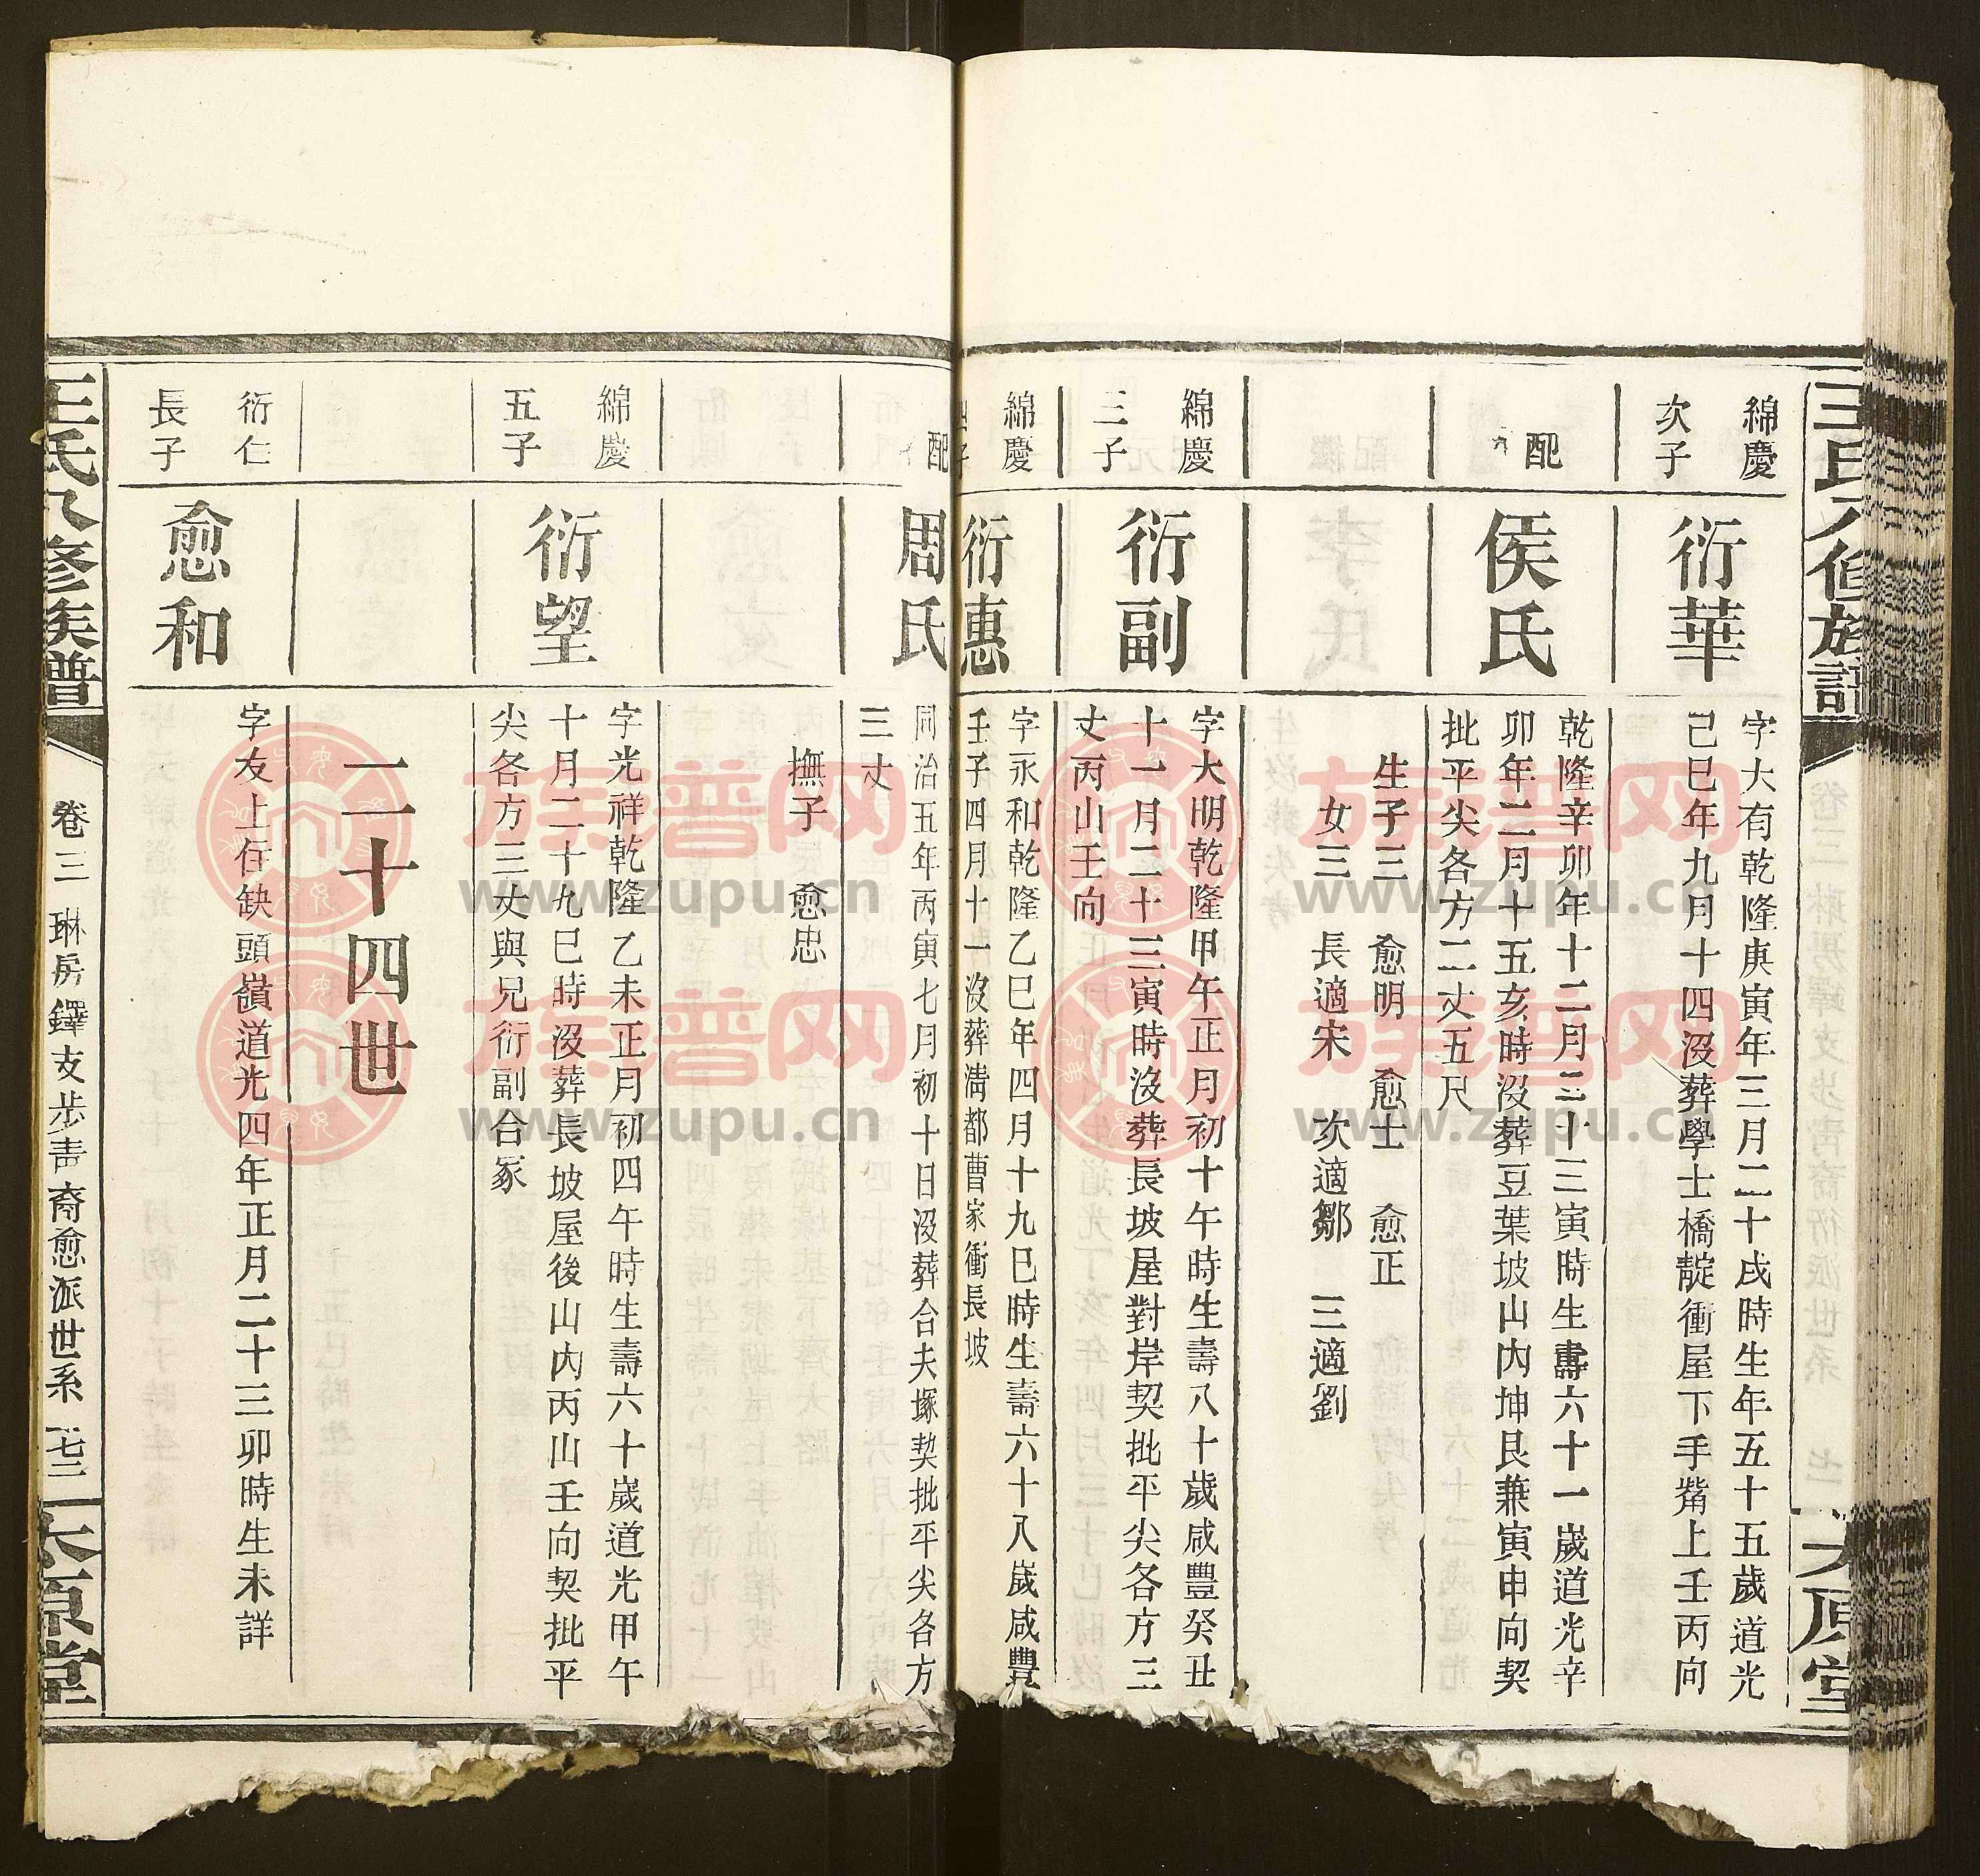 王氏八修族譜
太原堂
綿慶
次子
衍華
字大有乾隆庚寅年三月二十戌時生年五十五歲道光
己巳年九月十四沒葬學士橋靛衝屋下手觜上壬丙向
配
侯氏
乾隆辛卯年十二月二十三寅時生壽六十一歲道光辛
卯年二月十五亥時沒葬豆葉坡山內坤艮兼寅申向契
批平尖各方二丈五尺
生子三 愈明 愈士 愈正
女三 長適宋 次適鄒 三適劉
綿慶
三子
衍副
字大明乾隆甲午正月初十午時生壽八十歲咸豐癸丑
十一月二十三寅時沒葬長坡屋對岸契批平尖各方三
丈丙山壬向
綿慶
四子
衍惠
字永和乾隆乙巳年四月十九巳時生壽六十八歲咸豐
壬子四月十一沒葬清都曹家衝長坡
配
周氏
同治五年丙寅七月初十日沒葬合夫塚契批平尖各方
三丈
撫子 愈忠
綿慶
五子
衍望
字光祥乾隆乙未正月初四午時生壽六十歲道光甲午
十月二十九巳時沒葬長坡屋後山內丙山壬向契批平
尖各方三丈與兄衍副合冢
二十四世
衍仁
長子
愈和
字友上任缺頭嶺道光四年正月二十三卯時生未詳
王氏八修族譜
卷三 琳房鐸支步青裔愈派世系 七三
太原堂
族譜网
www.zupu.cn
族譜网
www.zupu.cn
族譜网
www.zupu.cn
族譜网
www.zupu.cn